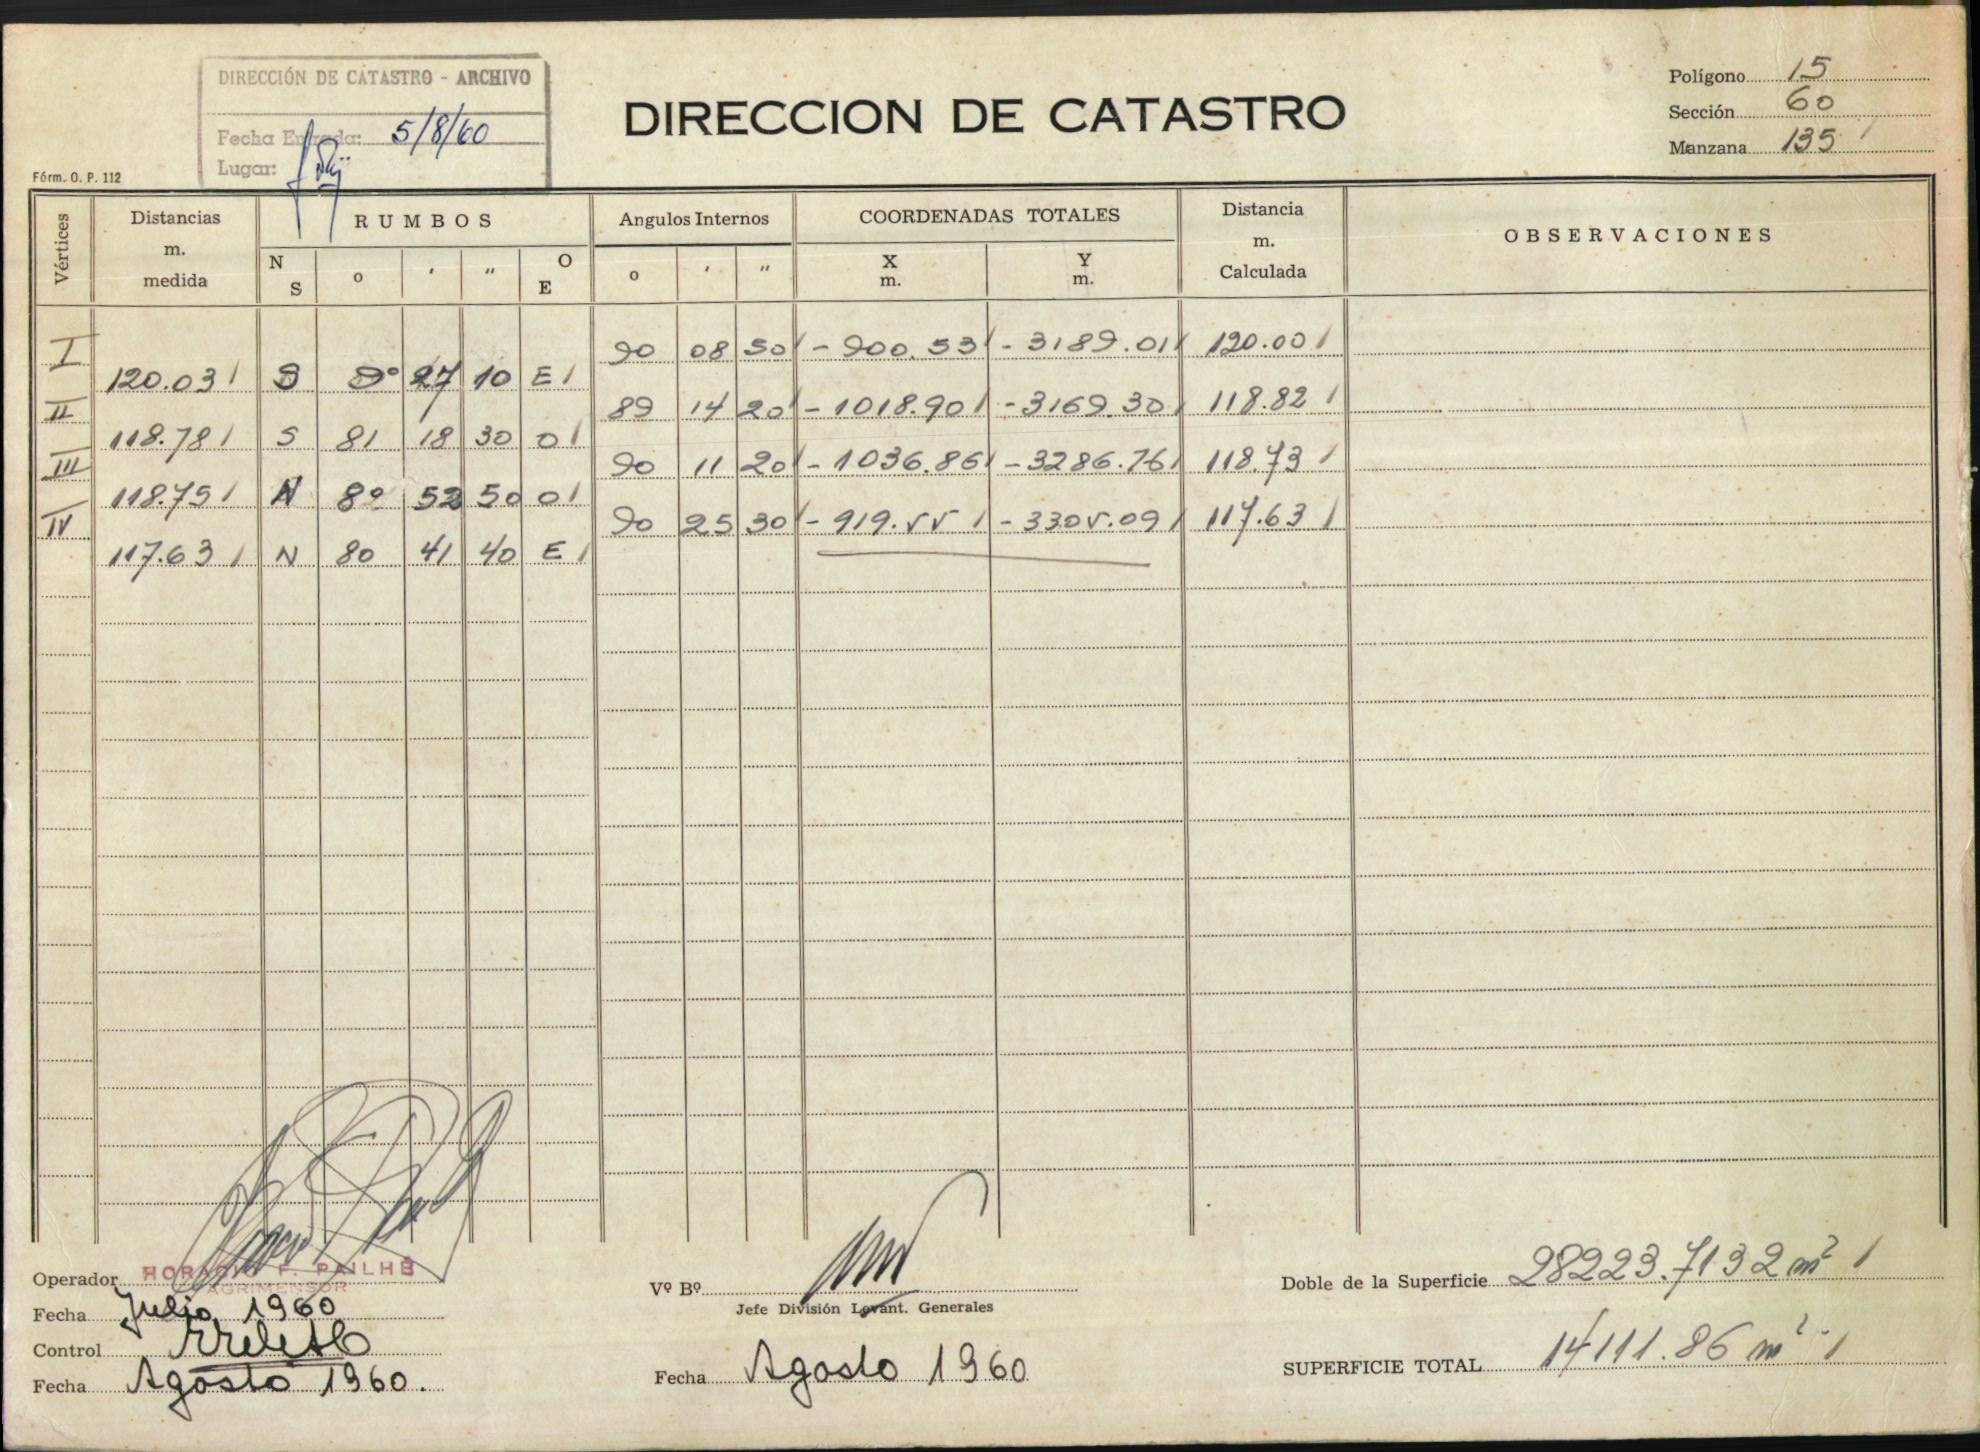 DIRECCIÓN DE CATASTRO - ARCHIVO
Fecha Entrada: 5/8/60
Lugar:
DIRECCION DE CATASTRO
Polígono 15
Sección 60
Manzana 135
Fórm. O. P. 112
Vértices
Distancias
m.
medida
RUMBOS
N S o ′ ″ O E
Angulos Internos
o ′ ″
COORDENADAS TOTALES
X m. Y m.
Distancia
m.
Calculada
OBSERVACIONES
I 90 08 50 - 900.53 - 3189.01 120.00
120.03 S 9° 27 10 E
II 89 14 20 - 1018.90 - 3169.30 118.82
118.78 S 81 18 30 O
III 90 11 20 - 1036.86 - 3286.76 118.73
118.75 N 8° 52 50 O
IV 90 25 30 - 919.55 - 3305.09 117.63
117.63 N 80 41 40 E
Operador HORACIO F. PAILHÉ
AGRIMENSOR
Fecha Julio 1960
Control
Fecha Agosto 1960.
Vº Bº
Jefe División Levant. Generales
Fecha Agosto 1960
Doble de la Superficie 28223.7132 m²
SUPERFICIE TOTAL 14111.86 m²